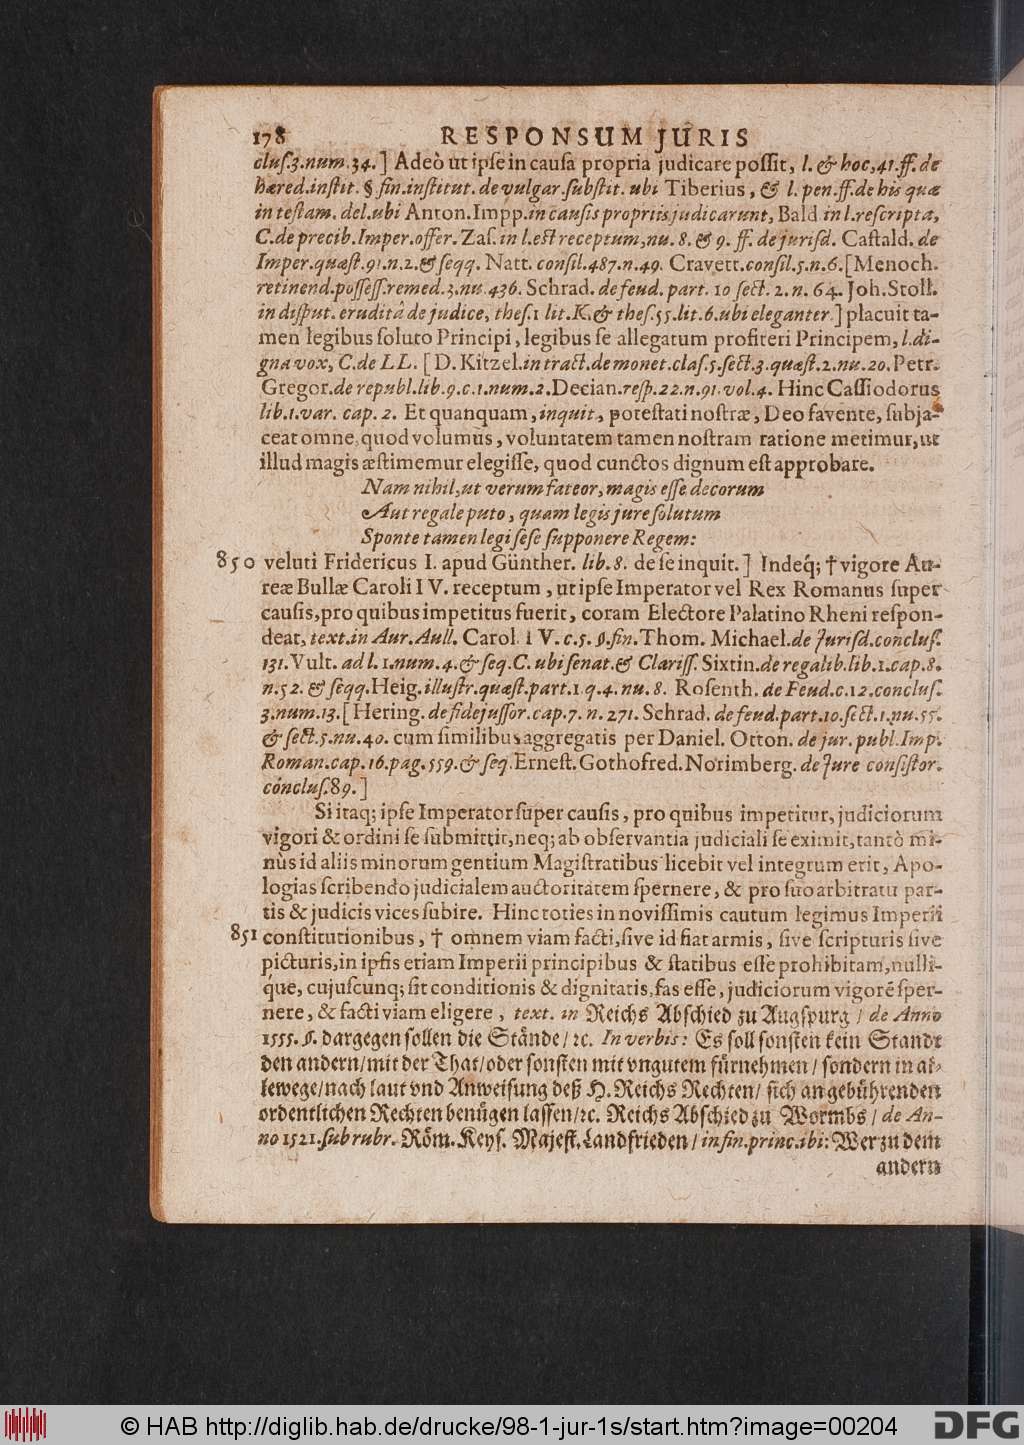 178 RESPONSUM JURIS
cluſ.3.num.34.] Adeò ut ipſe in cauſa propria judicare poſſit, l. & hoc, 41. ff. de
hæred. inſtit. § fin. inſtitut. de vulgar. ſubſtit. ubi Tiberius, & l. pen. ff. de his quæ
in teſtam. del. ubi Anton. Impp. in cauſis propriis judicarunt, Bald. in l. reſcripta,
C. de precib. Imper. offer. Zaſ. in l. eſt receptum, nu. 8. & 9. ff. de juriſd. Caſtald. de
Imper. quæſt. 91. n. 2. & ſeqq. Natt. conſil. 487. n. 49. Cravett. conſil. 5. n. 6. [Menoch.
retinend. poſſeſſ. remed. 3. nu. 436. Schrad. de feud. part. 10 ſect. 2. n. 64. Joh. Stoll.
in diſput. eruditâ de judice, theſ. 1 lit. K. & theſ. 55. lit. 6. ubi eleganter.] placuit ta-
men legibus ſoluto Principi, legibus ſe allegatum profiteri Principem, l. di-
gna vox, C. de LL. [D. Kitzel. in tract. de monet. claſ. 5. ſect. 3. quæſt. 2. nu. 20. Petr.
Gregor. de republ. lib. 9. c. 1. num. 2. Decian. reſp. 22. n. 91. vol. 4. Hinc Caſſiodorus
lib. 1. var. cap. 2. Et quanquam, inquit, poteſtati noſtræ, Deo favente, ſubja-
ceat omne, quod volumus, voluntatem tamen noſtram ratione metimur, ut
illud magis æſtimemur elegiſſe, quod cunctos dignum eſt approbare.
Nam nihil, ut verum fateor, magis eſſe decorum
Aut regale puto, quam legis jure ſolutum
Sponte tamen legi ſeſe ſupponere Regem:
850 veluti Fridericus I. apud Günther. lib. 8. de ſe inquit.] Indeq́; † vigore Au-
reæ Bullæ Caroli IV. receptum, ut ipſe Imperator vel Rex Romanus ſuper
cauſis, pro quibus impetitus fuerit, coram Electore Palatino Rheni reſpon-
deat, text. in Aur. Aull. Carol. IV. c. 5. §. fin. Thom. Michael. de Juriſd. concluſ.
131. Vult. ad l. 1. num. 4. & ſeq. C. ubi ſenat. & Clariſſ. Sixtin. de regalib. lib. 1. cap. 8.
n. 52. & ſeqq. Heig. illuſtr. quæſt. part. 1. q. 4. nu. 8. Roſenth. de Feud. c. 12. concluſ.
3. num. 13. [Hering. de fidejuſſor. cap. 7. n. 271. Schrad. de feud. part. 10. ſect. 1. nu. 55.
& ſect. 5. nu. 40. cum ſimilibus aggregatis per Daniel. Otton. de jur. publ. Imp.
Roman. cap. 16. pag. 559. & ſeq. Erneſt. Gothofred. Norimberg. de Jure conſiſtor.
concluſ. 89.]
Si itaq; ipſe Imperator ſuper cauſis, pro quibus impetitur, judiciorum
vigori & ordini ſe ſubmittit, neq; ab obſervantia judiciali ſe eximit, tantò mi-
nùs id aliis minorum gentium Magiſtratibus licebit vel integrum erit, Apo-
logias ſcribendo judicialem auctoritatem ſpernere, & pro ſuo arbitratu par-
tis & judicis vices ſubire. Hinc toties in noviſſimis cautum legimus Imperii
851 conſtitutionibus, † omnem viam facti, ſive id fiat armis, ſive ſcripturis ſive
picturis, in ipſis etiam Imperii principibus & ſtatibus eſſe prohibitam, nulli-
que, cujuſcunq; ſit conditionis & dignitatis, fas eſſe, judiciorum vigorē ſper-
nere, & facti viam eligere, text. in Reichs Abſchied zu Augſpurg / de Anno
1555. §. dargegen ſollen die Stände / ꝛc. In verbis: Es ſoll ſonſten kein Standt
den andern / mit der That / oder ſonſten mit vngutem fürnehmen / ſondern in al-
lewege / nach laut vnd Anweiſung deß H. Reichs Rechten / ſich an gebührenden
ordentlichen Rechten benügen laſſen / ꝛc. Reichs Abſchied zu Wormbs / de An-
no 1521. ſub rubr. Röm. Keyſ. Majeſt. Landfrieden / in fin. princ. ibi: Wer zu dem
andern
© HAB http://diglib.hab.de/drucke/98-1-jur-1s/start.htm?image=00204 DFG